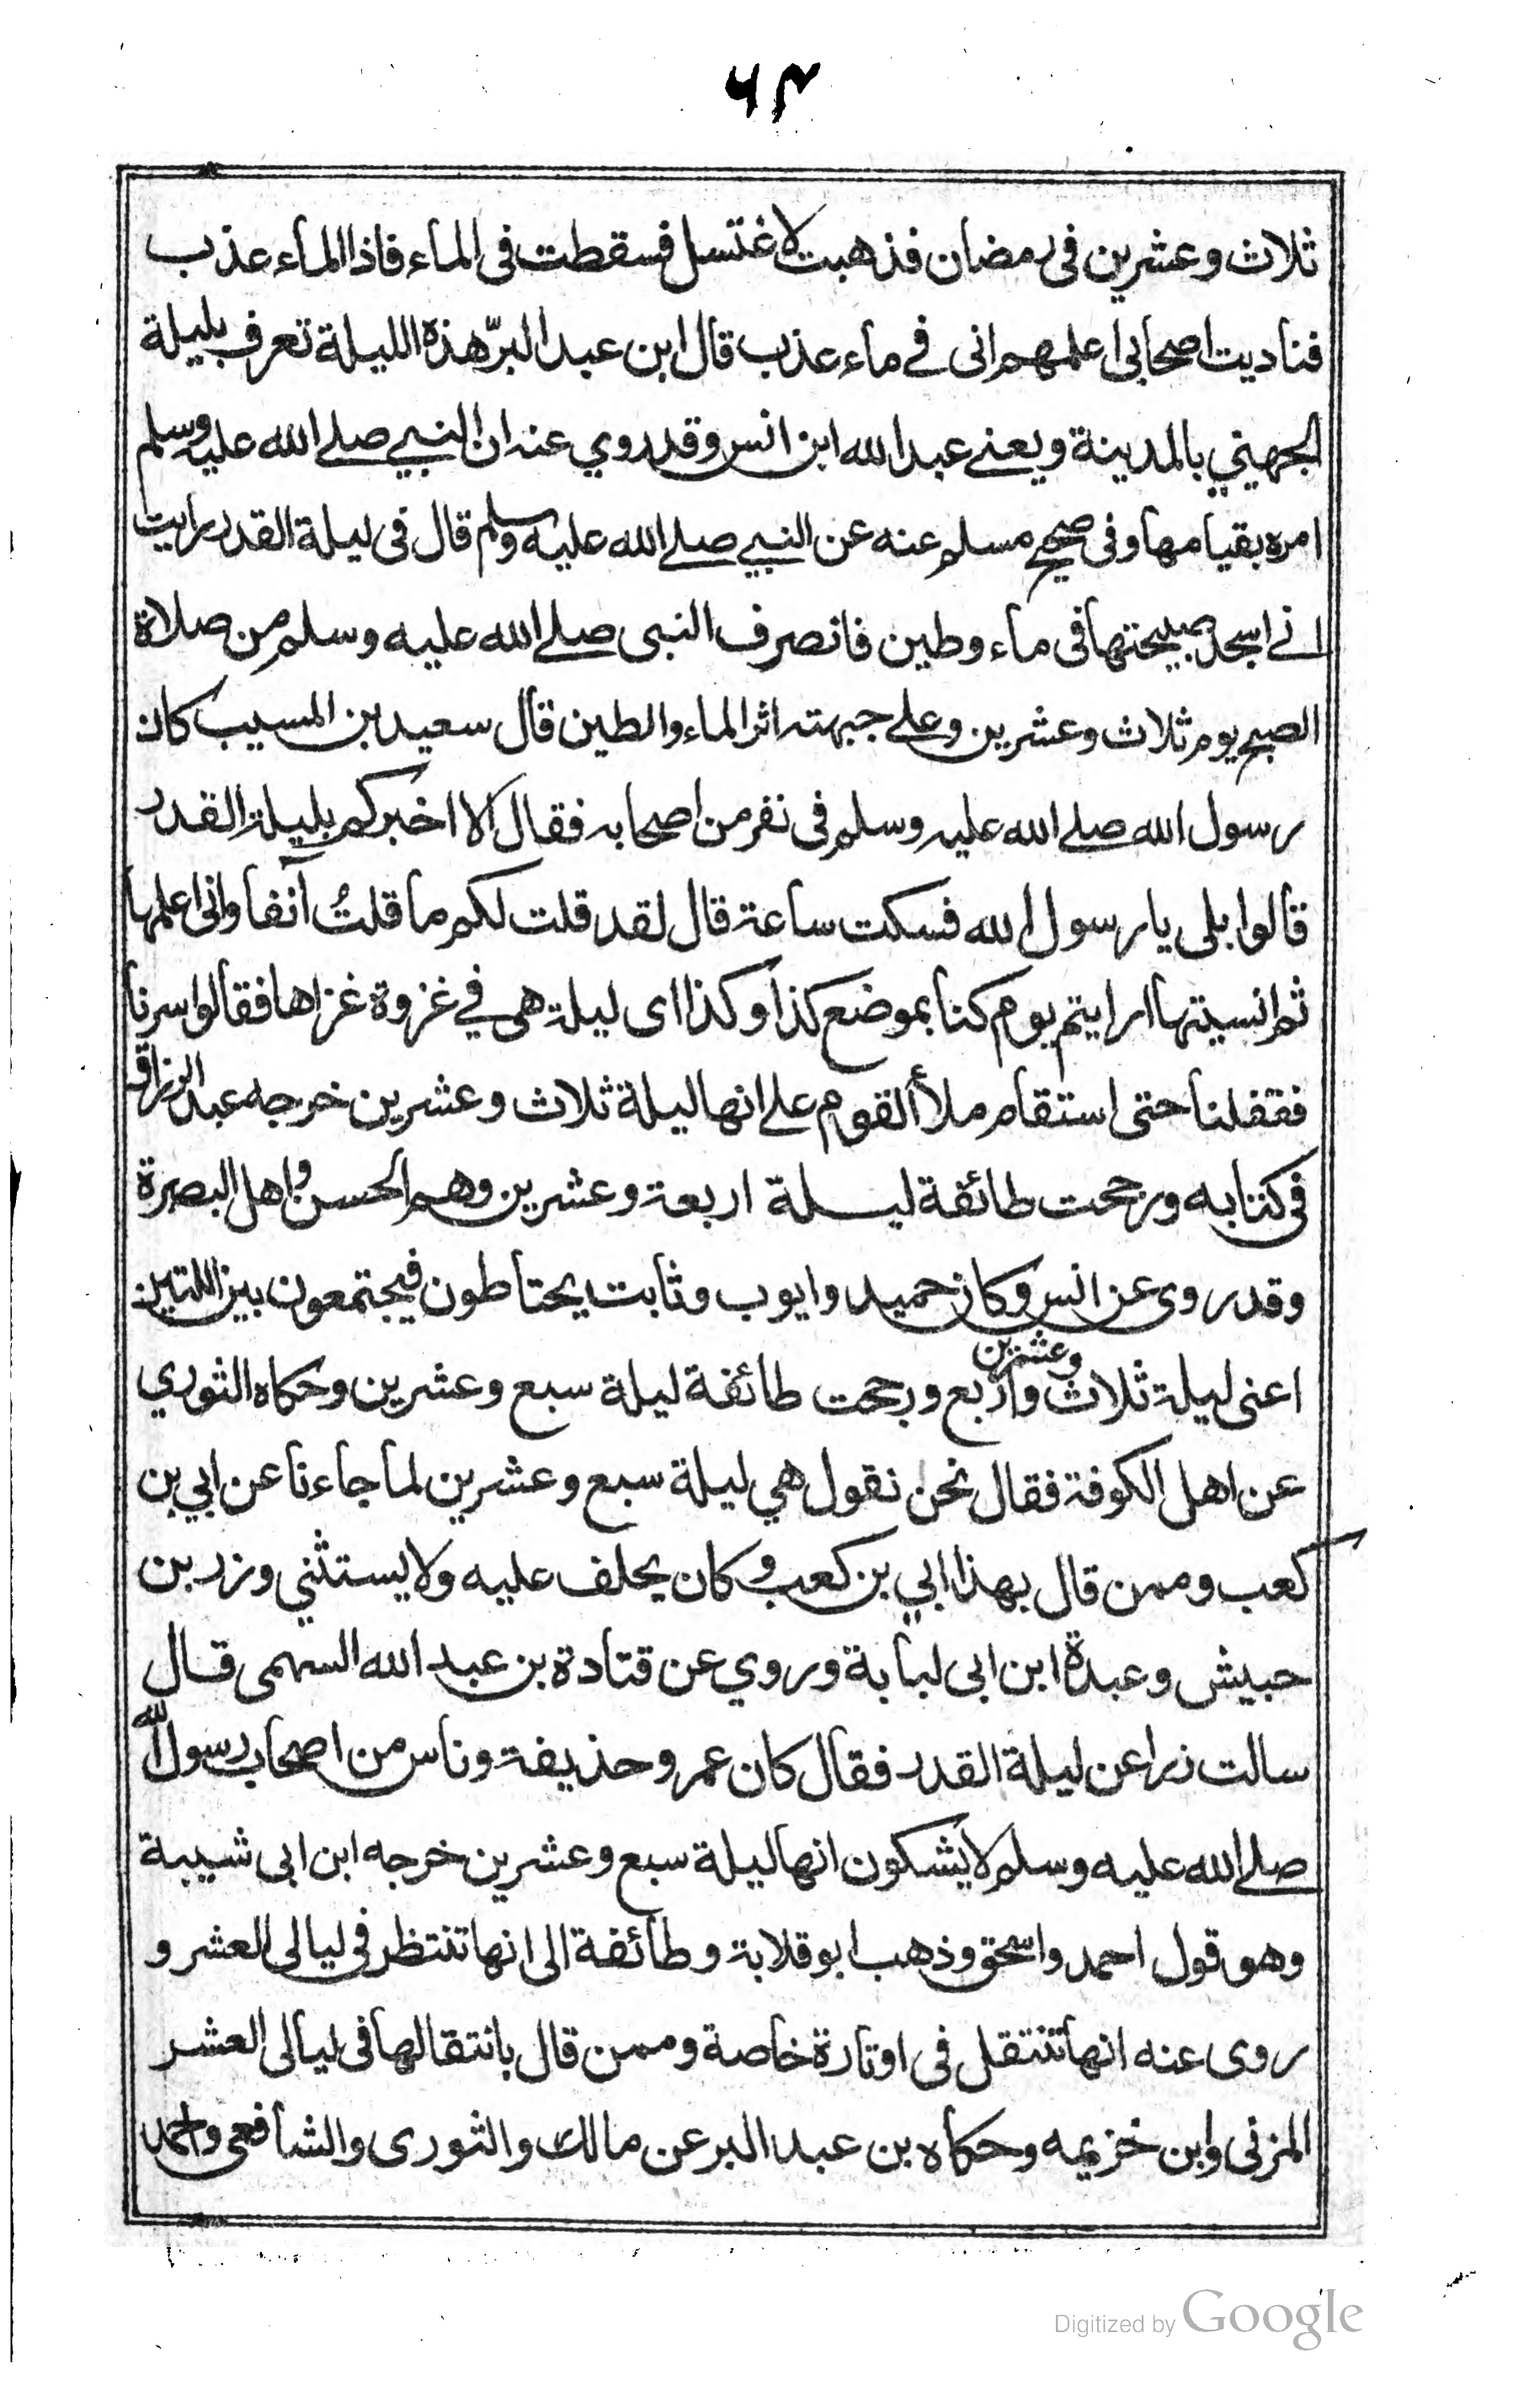 ٦٣
ثلاث وعشرين فى رمضان فذهبت لاغتسل فسقطت فى الماء فاذا الماء عذب
فناديت اصحابى اعلمهم انى فے ماء عذب قال ابن عبد البرّ هذه الليلة تعرف بليلة
الجهيني بالمدينة ويعنے عبد الله ابن انس وقد روي عنه ان النبي صلے الله عليه وسلم
امره بقيامها وفى صحيح مسلم عنه عن النبي صلے الله عليه وسلم قال فى ليلة القدر رايت
انے اسجد صبيحتها فى ماء وطين فانصرف النبى صلے الله عليه وسلم من صلاة
الصبح يوم ثلاث وعشرين وعلے جبهته اثر الماء والطين قال سعيد بن المسيب كان
رسول الله صلے الله عليه وسلم فى نفر من اصحابه فقال الا اخبركم بليلة القدر
قالوا بلى يا رسول الله فسكت ساعة قال لقد قلت لكم ما قلتُ آنفا وانى اعلمها
ثم انسيتها ارايتم يوم كنا بموضع كذا وكذا اى ليلة هى في غزوة غزاها فقالوا سرنا
فقفلنا حتى استقام ملأ القوم علے انها ليلة ثلاث وعشرين خرجه عبد الرزاق
فى كتابه ورجحت طائفة ليلة اربعة وعشرين وهم الحسن واهل البصرة
وقد روى عن انس وكان حميد وايوب وثابت يحتاطون فيجتمعون بين اللتين
اعنى ليلة ثلاث واربع وعشرين ورجحت طائفة ليلة سبع وعشرين وحكاه الثوري
عن اهل الكوفة فقال نحن نقول هي ليلة سبع وعشرين لما جاءنا عن ابي بن
كعب وممن قال بهذا ابي بن كعب وكان يحلف عليه ولا يستثني وزر بن
حبيش وعبدة ابن ابى لبابة وروي عن قتادة بن عبد الله السهمى قال
سالت زرا عن ليلة القدر فقال كان عمر وحذيفة وناس من اصحاب رسول الله
صلے الله عليه وسلم لا يشكون انها ليلة سبع وعشرين خرجه ابن ابى شيبة
وهو قول احمد واسحق وذهب ابو قلابة وطائفة الى انها تنتظر فى ليالى العشر و
روى عنه انها تنتقل فى اوتارة خاصة وممن قال بانتقالها فى ليالى العشر
المزنى وابن خزيمه وحكاه بن عبد البر عن مالك والثورى والشافعى واحمد
Digitized by Google